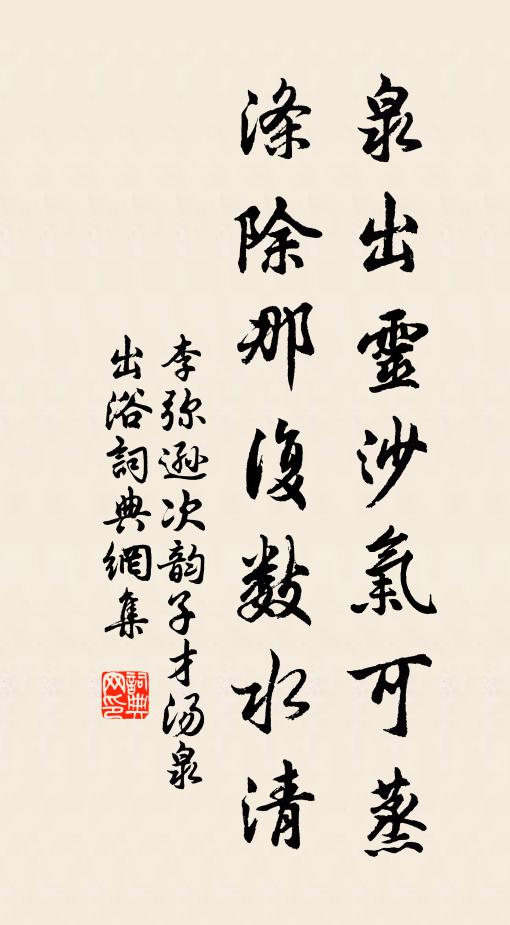 泉出靈沙氣可蒸
滌除那復數水清
李弥遜次韵子才湯泉
出浴詞典網集
詞典网印